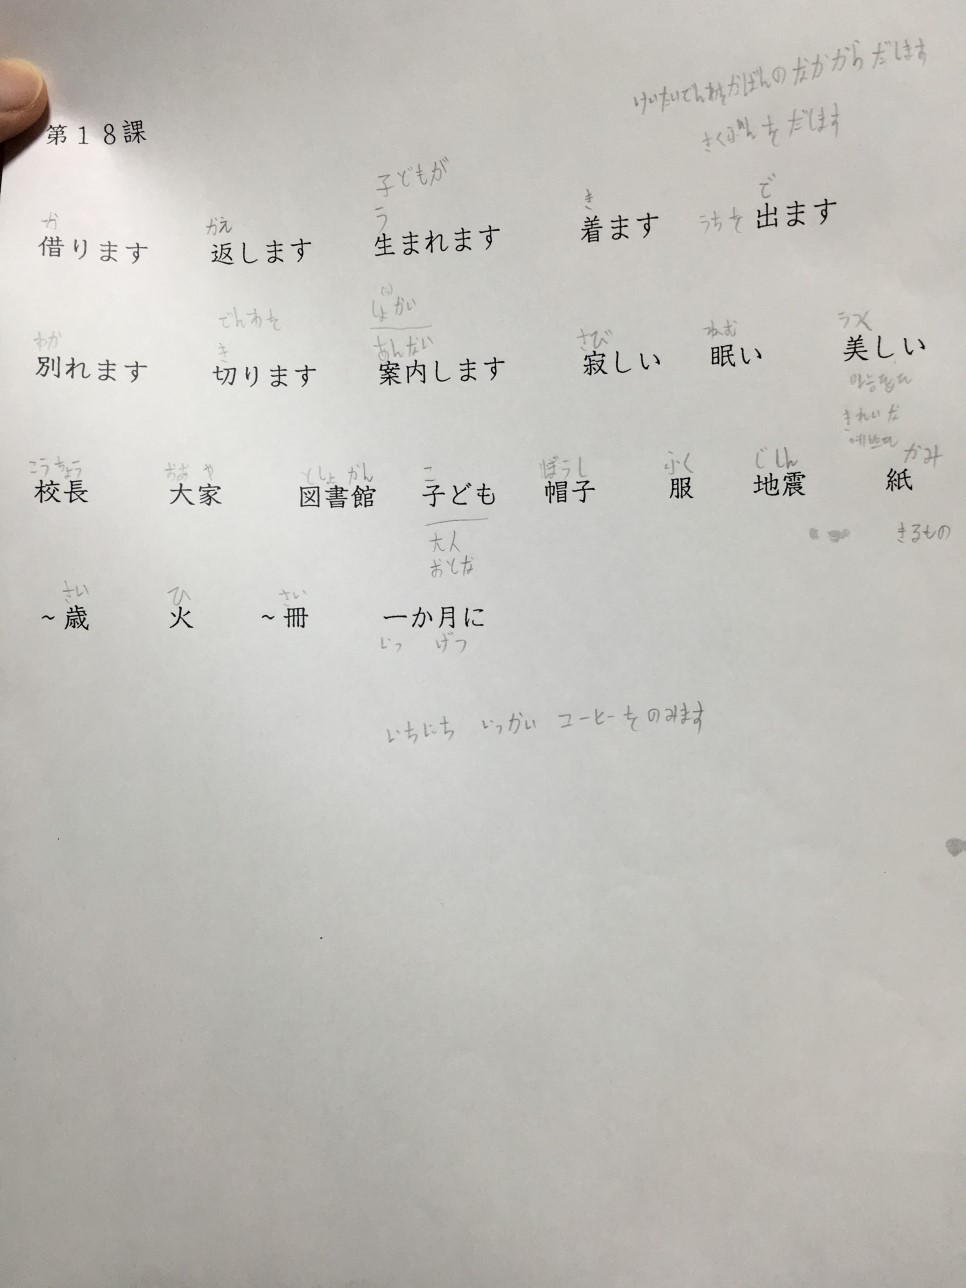 けいたいでんわをかばんのなかからだします
第１８課
さくぶんをだします
子どもが
か かえ う き で
借ります 返します 生まれます 着ます うちを 出ます
しょうかい
でんわを
わか き あんない さび ねむ うつく
別れます 切ります 案内します 寂しい 眠い 美しい
きれいだ
예쁘다
こうちょう おおや としょかん こ ぼうし ふく じしん かみ
校長 大家 図書館 子ども 帽子 服 地震 紙
大人 きるもの
おとな
さい ひ さい
～歳 火 ～冊 一か月に
いっ げつ
いちにち いっかい コーヒーをのみます